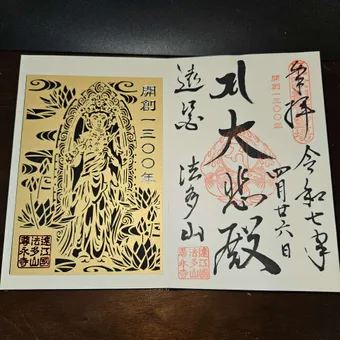 奉拝
令和七年
四月廿六日
開創一三〇〇年
大悲殿
遠州 法多山
遠江國
法多山
尊永寺
開創一三〇〇年
遠江國
法多山
尊永寺